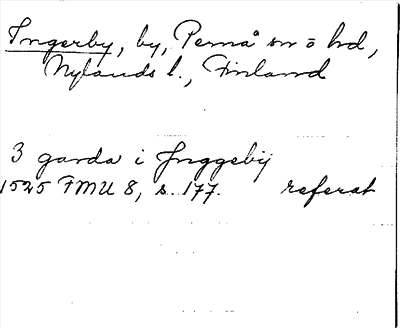 Ingerby, by, Pernå sn o hd,
Nylands l., Finland
3 garda i Jnggebÿ
1525 FMU 8, s. 177. referat